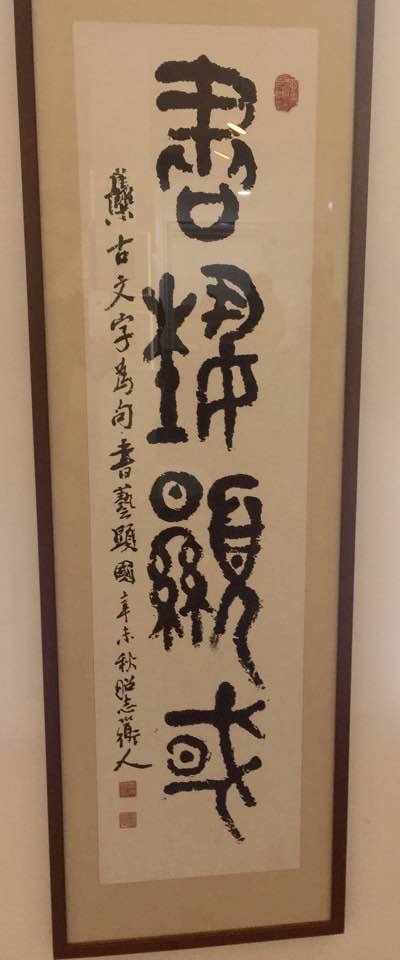 書藝顯國
集古文字為句書藝顯國辛未秋昭志
人